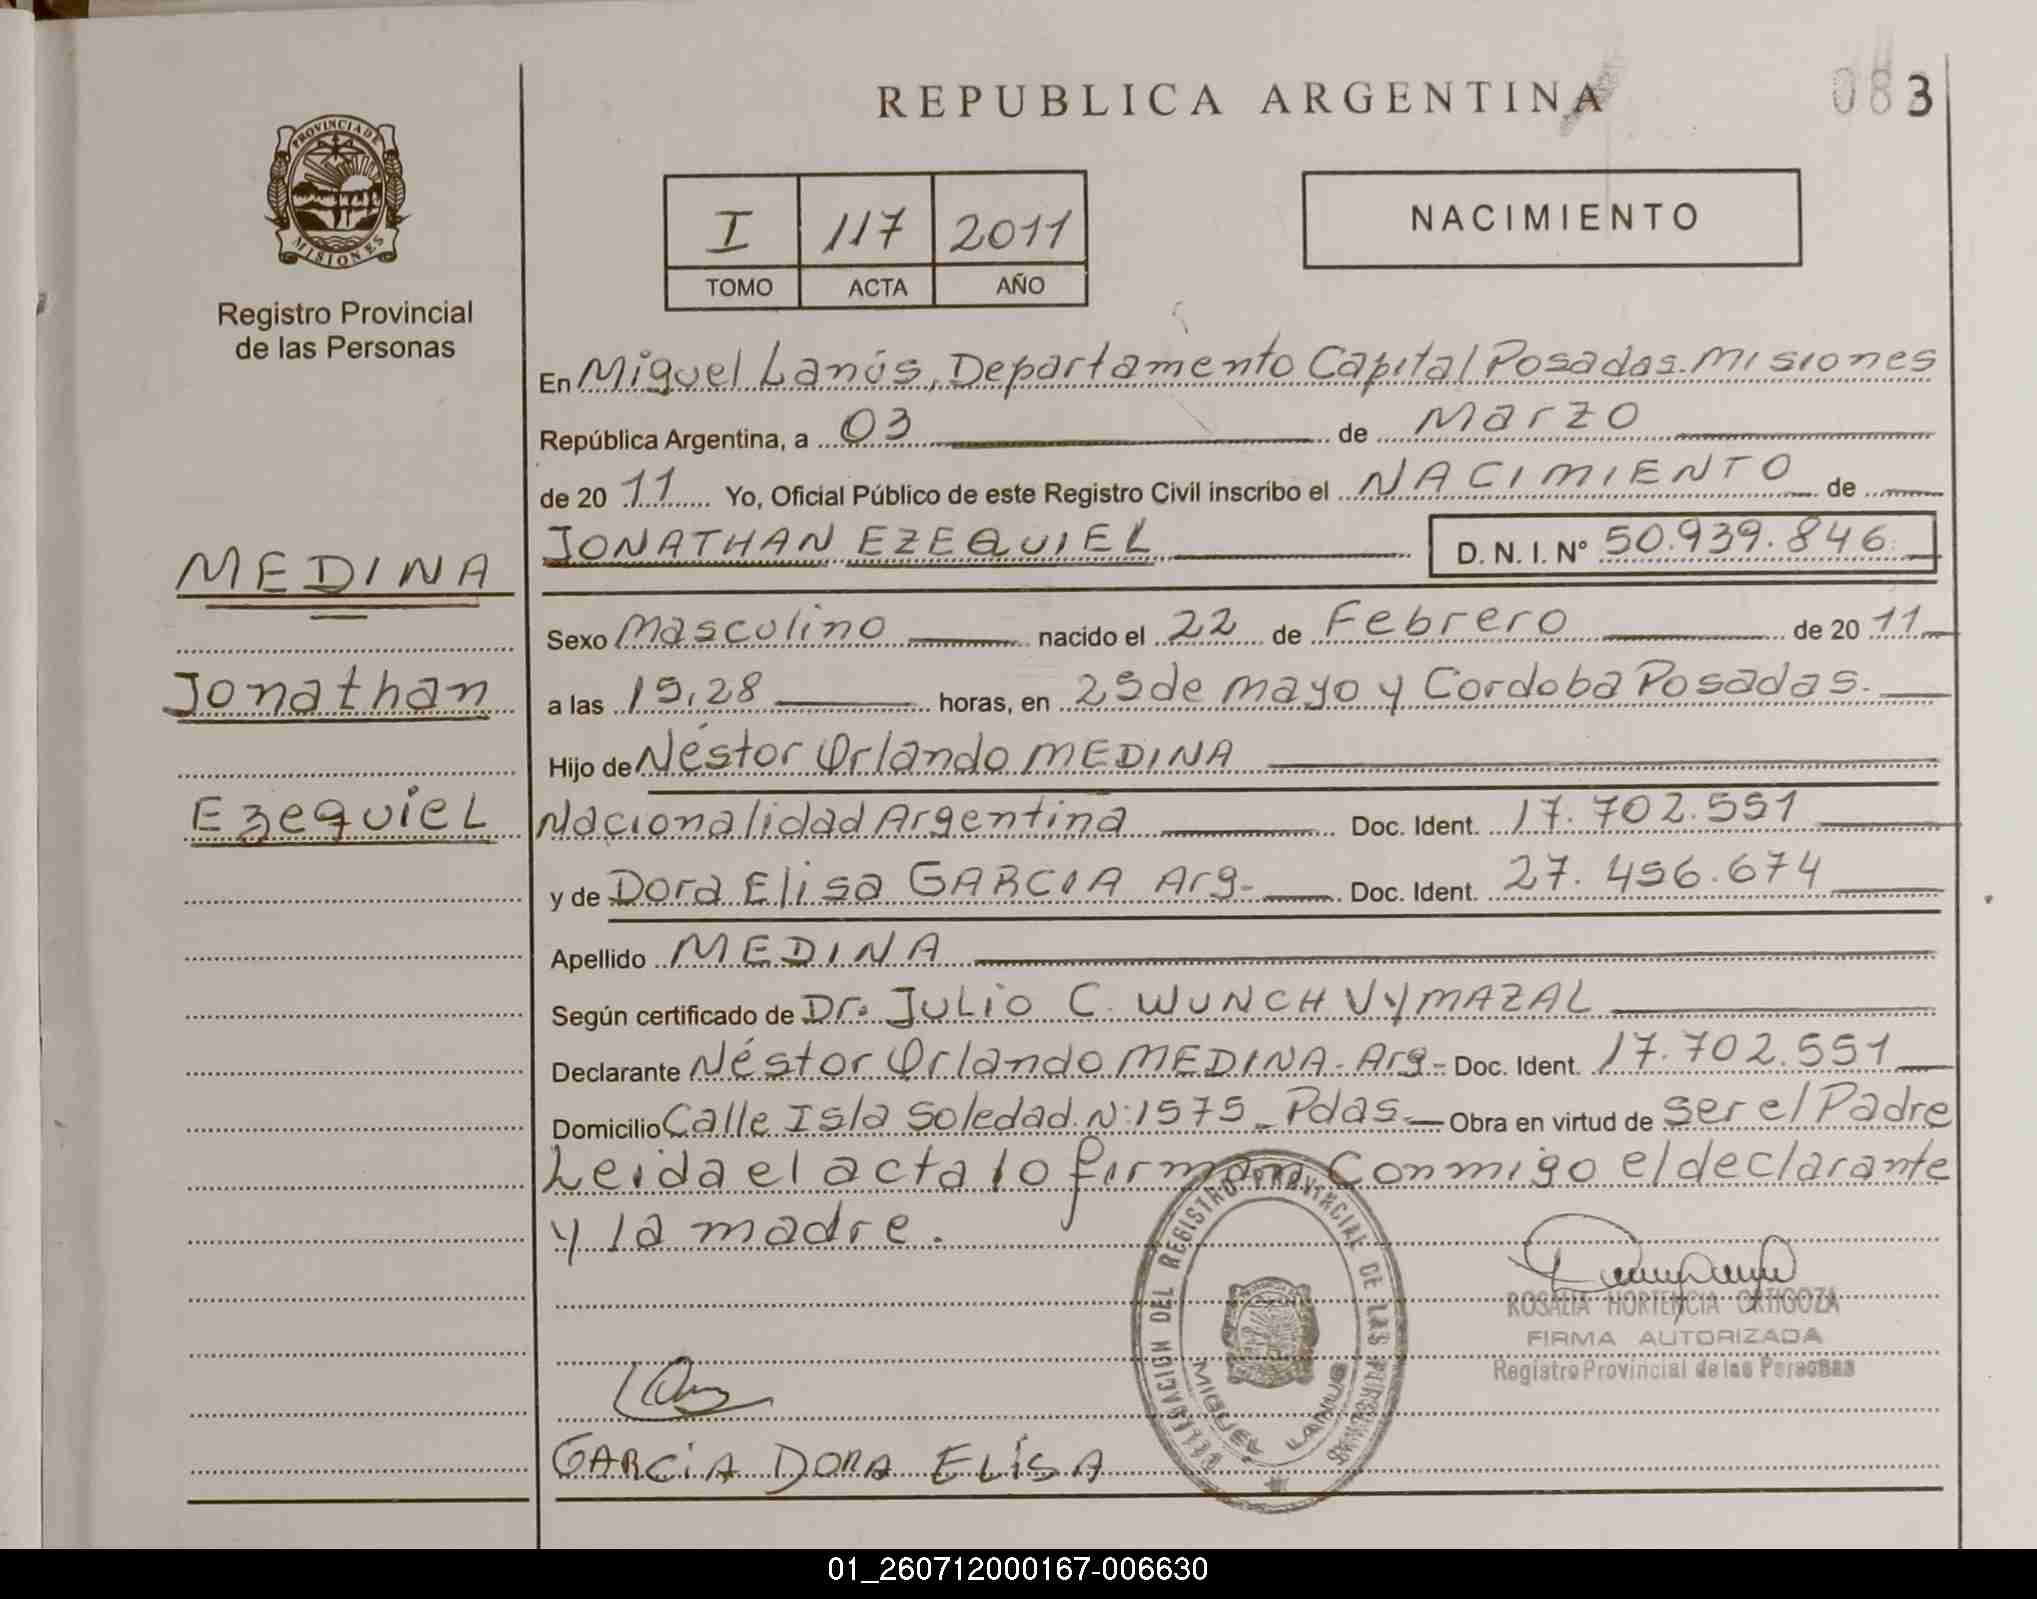 REPUBLICA ARGENTINA
083
PROVINCIA DE
MISIONES
Registro Provincial
de las Personas
I 117 2011
TOMO ACTA AÑO
NACIMIENTO
En Miguel Lanús, Departamento Capital Posadas. Misiones
República Argentina, a 03 de Marzo
de 20 11 Yo, Oficial Público de este Registro Civil inscribo el NACIMIENTO de
JONATHAN EZEQUIEL D. N. I. Nº 50.939.846
MEDINA
Sexo Masculino nacido el 22 de Febrero de 20 11
Jonathan
a las 15,28 horas, en 25 de mayo y Cordoba Posadas.
Hijo de Néstor Orlando MEDINA
Ezequiel
Nacionalidad Argentina Doc. Ident. 17.702.551
y de Dora Elisa GARCIA Arg- Doc. Ident. 27.456.674
Apellido MEDINA
Según certificado de Dr. JULIO C. WUNCH VYMAZAL
Declarante Néstor Orlando MEDINA - Arg- Doc. Ident. 17.702.551
Domicilio Calle Isla Soledad N: 1575 - Pdas. Obra en virtud de ser el Padre
Leida el acta lo firman Conmigo el declarante
y la madre.
DELEGACION DEL REGISTRO PROVINCIAL DE LAS PERSONAS
MIGUEL LANUS
ROSALIA HORTENCIA ORTIGOZA
FIRMA AUTORIZADA
Registro Provincial de las Personas
GARCIA DORA ELISA
01_260712000167-006630